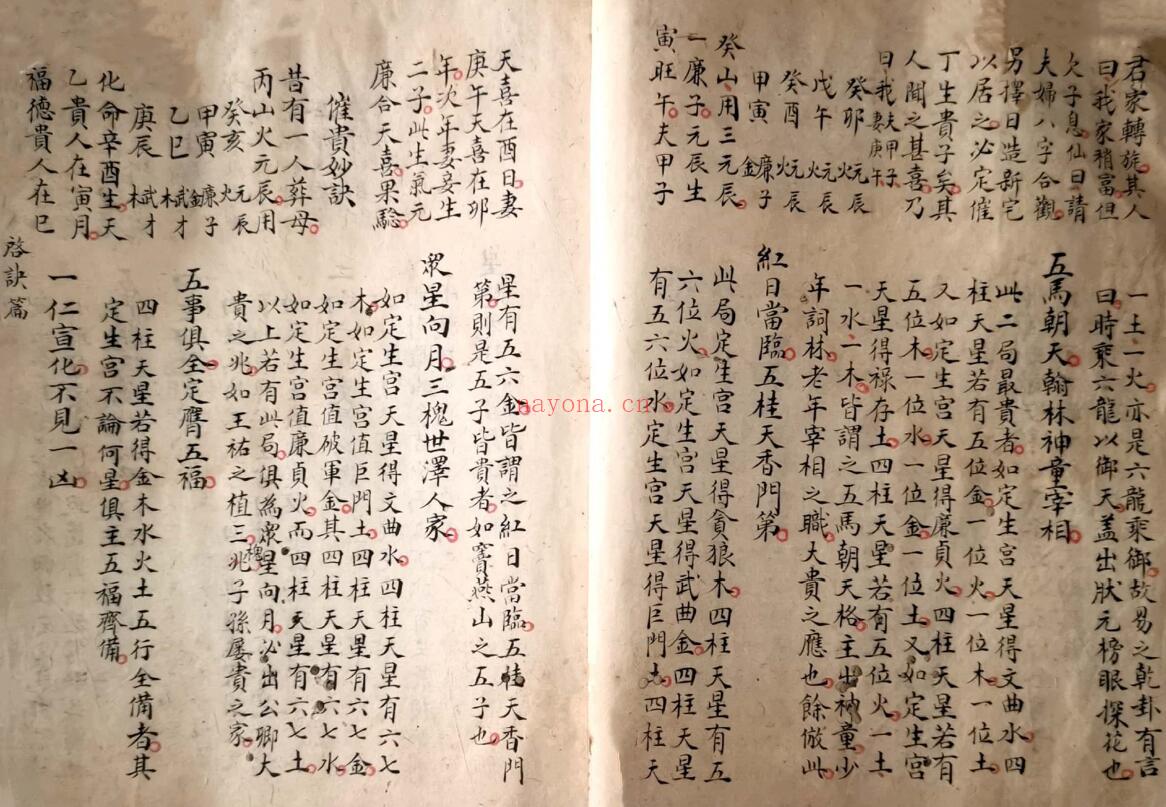 君家轉旋其人
曰我家稍富但
欠子息仙曰請
夫婦八字合觀
另擇日造新宅
以居之必定催
丁生貴子矣其
人聞之甚喜乃
曰我夫甲子妻庚午
癸卯 元辰火
戊午 元辰火
癸酉 元辰火
甲寅 廉子金
癸山用三元辰
一廉子元辰生
寅旺午夫甲子
天喜在酉日妻
庚午天喜在卯
年次年妻妾生
二子此生氣元
廉合天喜果驗
催貴妙訣
昔有一人葬母
丙山火元辰用
癸亥 元辰火
甲寅 廉子金
乙巳 武才木
庚辰 武才木
化命辛酉生天
乙貴人在寅月
福德貴人在巳
一土一火亦是六龍乘御故易之乾卦有言
曰時乘六龍以御天蓋出狀元榜眼探花也
五馬朝天翰林神童宰相
此二局最貴者如定生宮天星得文曲水四
柱天星若有五位金一位火一位木一位土
又如定生宮天星得廉貞火四柱天星若有
五位木一位水一位金一位土又如定生宮
天星得祿存土四柱天星若有五位火一土
一水一木皆謂之五馬朝天格主出神童少
年詞林老年宰相之職大貴之應也餘倣此
紅日當臨五桂天香門第
此局定生宮天星得貪狼木四柱天星有五
六位火如定生宮天星得武曲金四柱天星
有五六位水定生宮天星得巨門土四柱天
星有五六金皆謂之紅日當臨五桂天香門
第則是五子皆貴者如竇燕山之五子也
眾星向月三槐世澤人家
如定生宮天星得文曲水四柱天星有六七
木如定生宮值巨門土四柱天星有六七金
如定生宮值破軍金其四柱天星有六七水
如定生宮值廉貞火而四柱天星有六七土
以上若有此局俱為眾星向月必出公卿大
貴之兆如王祐之植三槐兆子孫屢貴之家
五事俱全定膺五福
四柱天星若得金木水火土五行全備者其
定生宮不論何星俱主五福齊備
一仁宣化不見一凶
啓訣篇
nayona.cn